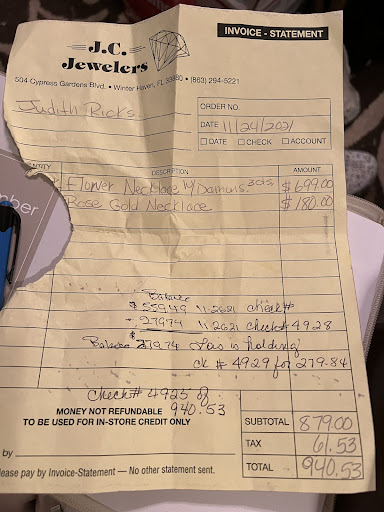 INVOICE - STATEMENT
J.C.
Jewelers
504 Cypress Gardens Blvd. • Winter Haven, FL 33880 • (863) 294-5221
Judith Ricks
ORDER NO.
DATE 11/24/2021
DATE CHECK ACCOUNT
NTITY DESCRIPTION AMOUNT
Flower Necklace W/ 3cts. $699.00
Rose Gold Necklace $180.00
Balance
$559.49 11-2621 check#
- 279.74 11-2621 Check# 4928
Balance $279.74 is holding
ck # 4929 for 279.84
check# 4925 of
940.53
MONEY NOT REFUNDABLE
TO BE USED FOR IN-STORE CREDIT ONLY
SUBTOTAL 879.00
TAX 61.53
TOTAL 940.53
by
ease pay by Invoice-Statement — No other statement sent.
mber